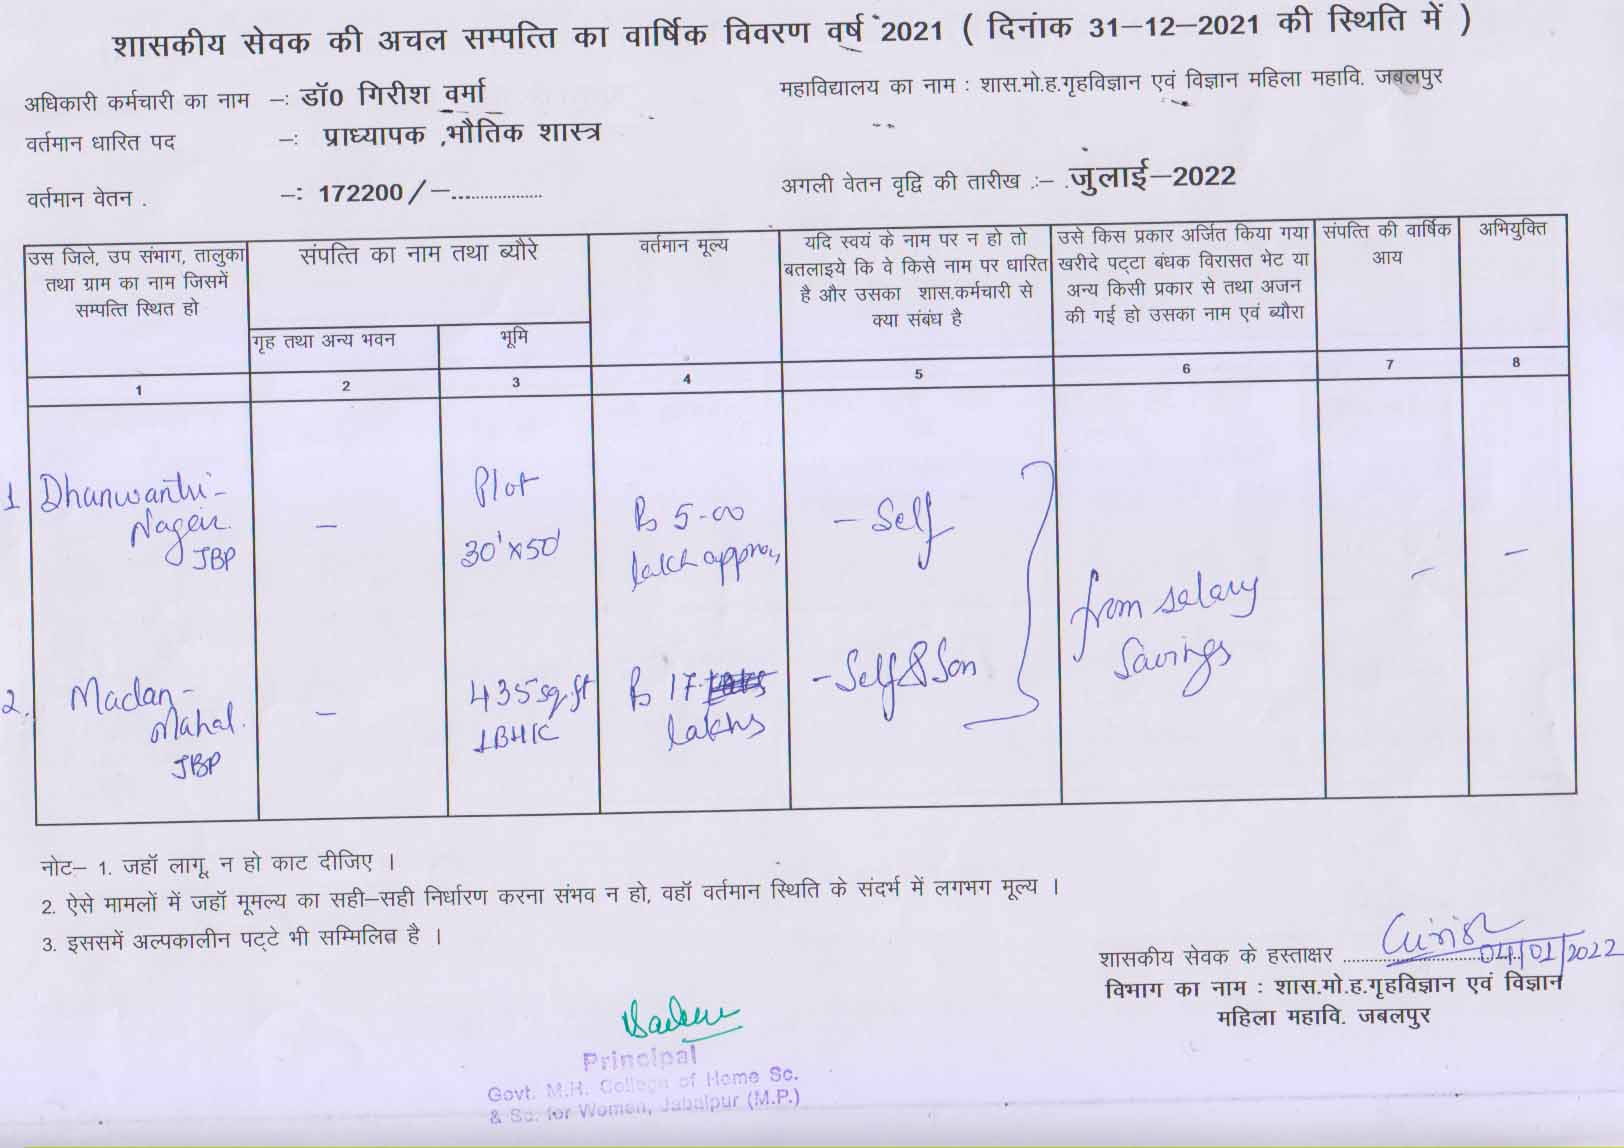 शासकीय सेवक की अचल सम्पत्ति का वार्षिक विवरण वर्ष 2021 ( दिनांक 31–12–2021 की स्थिति में )
अधिकारी कर्मचारी का नाम –: डॉ0 गिरीश वर्मा
महाविद्यालय का नाम : शास.मो.ह.गृहविज्ञान एवं विज्ञान महिला महावि. जबलपुर
वर्तमान धारित पद –: प्राध्यापक ,भौतिक शास्त्र
वर्तमान वेतन . –: 172200/–..................
अगली वेतन वृद्वि की तारीख .:– .जुलाई–2022
उस जिले, उप संभाग, तालुका
तथा ग्राम का नाम जिसमें
सम्पत्ति स्थित हो
संपत्ति का नाम तथा ब्यौरे
गृह तथा अन्य भवन
भूमि
वर्तमान मूल्य
यदि स्वयं के नाम पर न हो तो
बतलाइये कि वे किसे नाम पर धारित
है और उसका शास.कर्मचारी से
क्या संबंध है
उसे किस प्रकार अर्जित किया गया
खरीदे पट्टा बंधक विरासत भेट या
अन्य किसी प्रकार से तथा अजन
की गई हो उसका नाम एवं ब्यौरा
संपत्ति की वार्षिक
आय
अभियुक्ति
1 2 3 4 5 6 7 8
1 Dhanwantri-
Nagar.
JBP
–
Plot
30'x50'
Rs 5-00
lakh approx,
- Self
from salary
savings
–
–
2. Madan-
Mahal.
JBP
–
435 sq.ft
1BHK
Rs 17.
lakhs
- Self & Son
नोट– 1. जहॉ लागू न हो काट दीजिए ।
2. ऐसे मामलों में जहॉ मूमल्य का सही–सही निर्धारण करना संभव न हो, वहॉ वर्तमान स्थिति के संदर्भ में लगभग मूल्य ।
3. इससमें अल्पकालीन पट्टे भी सम्मिलित है ।
शासकीय सेवक के हस्ताक्षर .......... Girish 04/01/2022
विभाग का नाम : शास.मो.ह.गृहविज्ञान एवं विज्ञान
महिला महावि. जबलपुर
Principal
Govt. M.H. College of Home Sc.
& Sc. for Women, Jabalpur (M.P.)